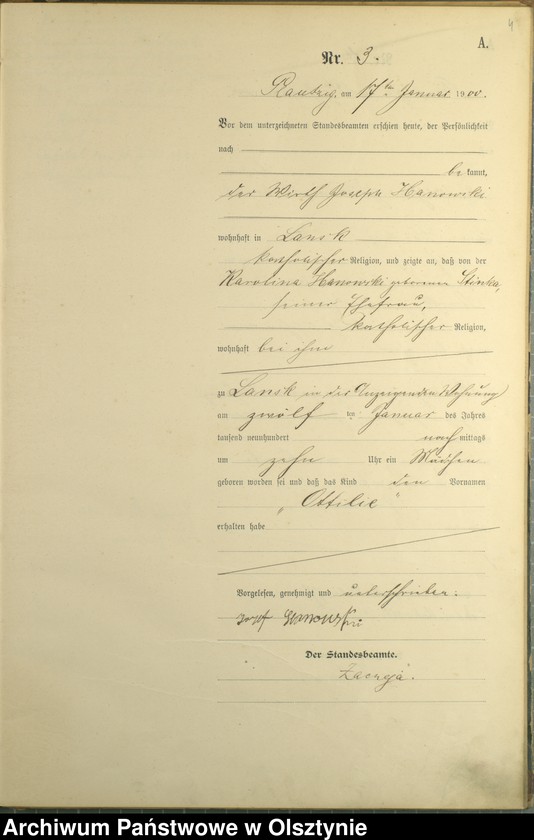 4
A.
Nr. 3.
am 17ten Januar 1900.
Vor dem unterzeichneten Standesbeamten erschien heute, der Persönlichkeit
nach
be kannt,
der Wirth Joseph Hanowski
wohnhaft in Lansk
katholischer Religion, und zeigte an, daß von der
Karolina Hanowski geborenen
seiner Ehefrau,
katholischer Religion,
wohnhaft bei ihm
zu Lansk in des Anzeigenden Wohnung
am zwölf ten Januar des Jahres
tausend neunhundert nach mittags
um zehn Uhr ein Mädchen
geboren worden sei und daß das Kind den Vornamen
„Ottilie“
erhalten habe
Vorgelesen, genehmigt und unterschrieben:
Josef
Der Standesbeamte.
Archiwum Państwowe w Olsztynie